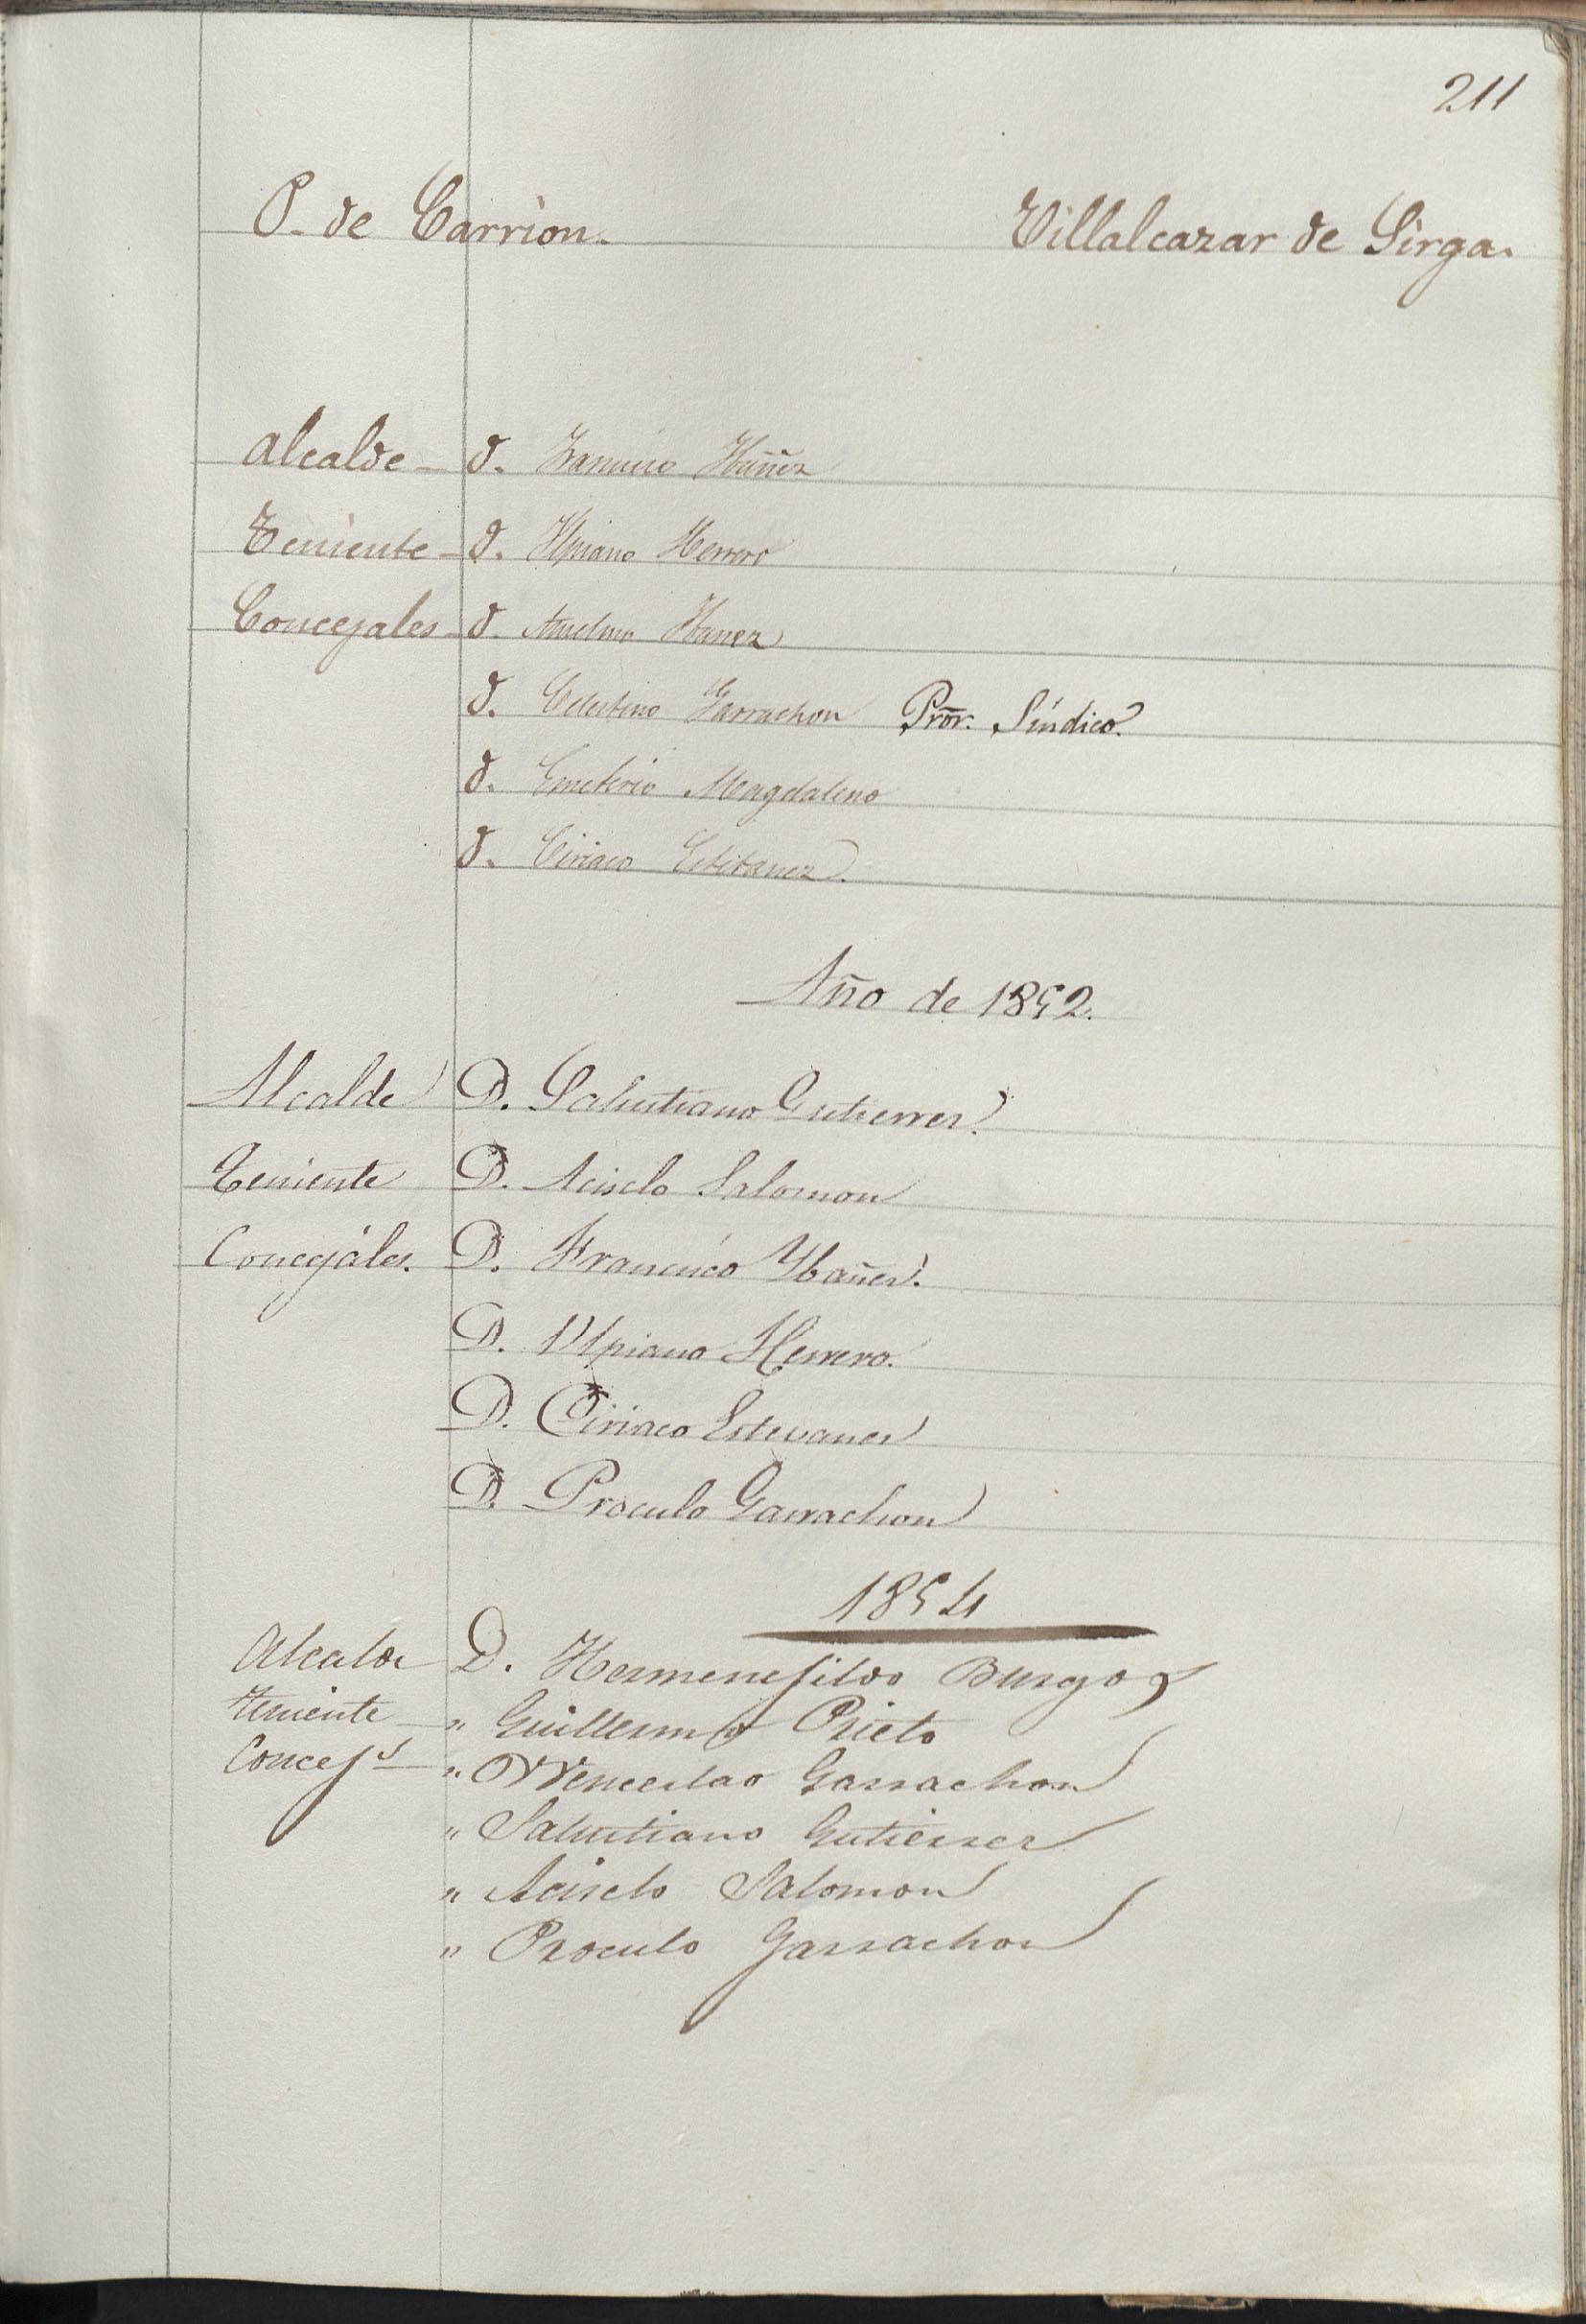 211
P. de Carrion. Villalcazar de Sirga.
Alcalde D. Ibañez
Teniente D. Ulpiano Herrero
Concejales D. Anselmo Ibanez
D. Celestino Garrachon Pror. Síndico.
D. Emeterio Magdaleno
D. Ciriaco Estevanez.
Año de 1852.
Alcalde D. Salustiano Gutierrez.
Teniente D. Acisclo Salomon
Concejáles. D. Francisco Ybañez.
D. Ulpiano Herrero.
D. Ciriaco Estevanez
D. Proculo Garrachon
1854
Alcalde D. Hermenejildo Burgos
Teniente " Guillermo Prieto
Concejs " Wenceslao Garrachon
" Salustiano Gutierrez
" Acisclo Salomon
" Proculo Garrachon